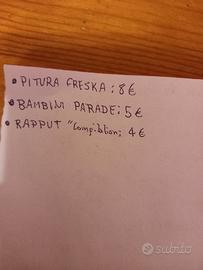 • PITURA FRESKA: 8€
• BAMBINI PARADE: 5€
• RAPPUT "Compilation: 4€
subito